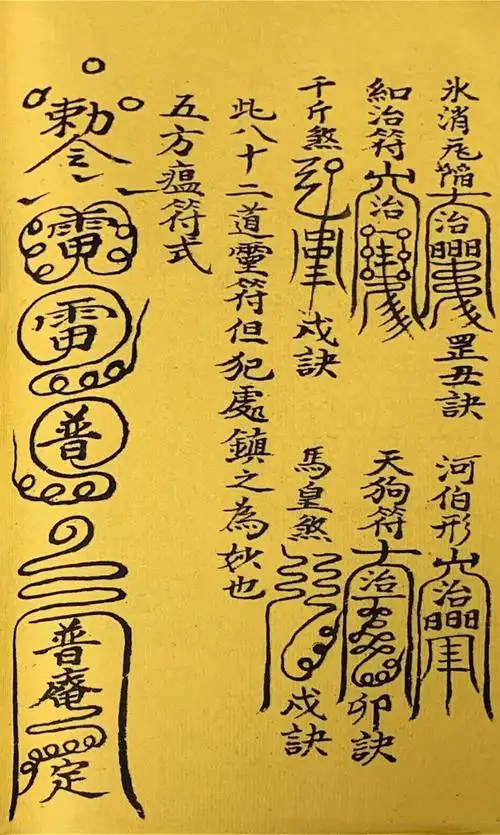 氷消瓦陷
治
罡丑訣
河伯形
治
治符
治
天狗符
治
卯訣
千斤煞
戌訣
馬皇煞
戌訣
此八十二道靈符但犯處鎮之為妙也
五方瘟符式
勅令
雷
雷
普
普庵
定